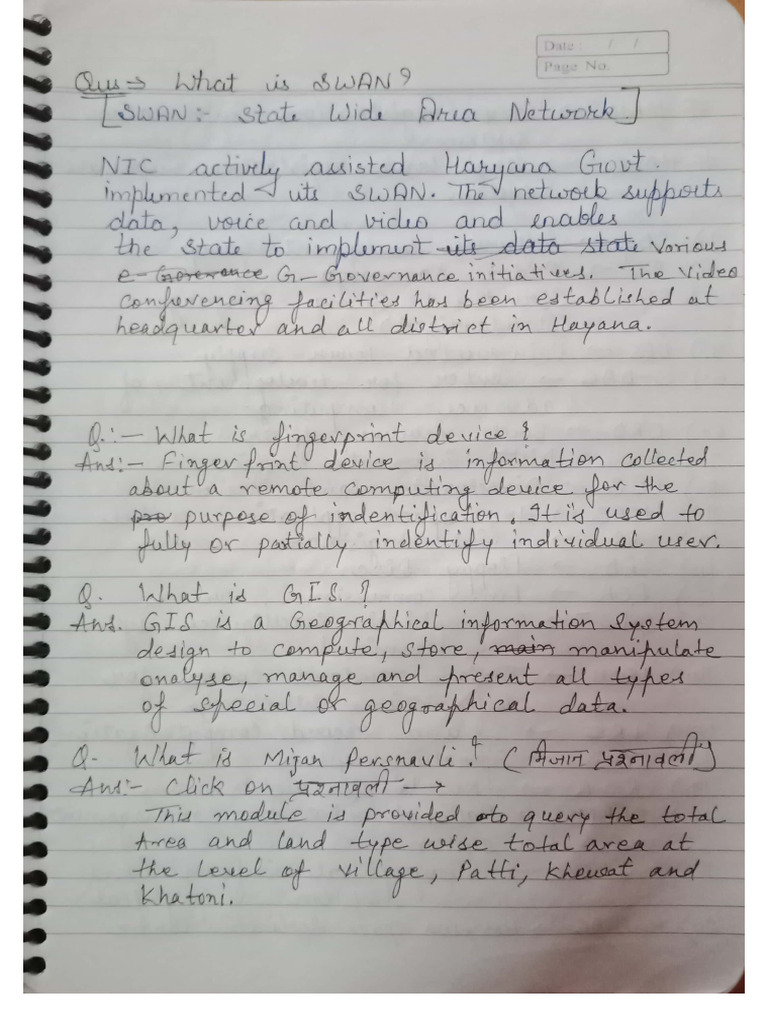 Date: / /
Page No.
Qus ⇒ What is SWAN?
[SWAN:- State Wide Area Network]
NIC actively assisted Haryana Govt.
implemented its SWAN. The network supports
data, voice and video and enables
the state to implement its data state various
e-Goverence G-Governance initiatives. The Video
Confrencing facilities has been established at
headquarter and all district in Hayana.
Q:- What is fingerprint device?
Ans:- Finger print device is information collected
about a remote computing device for the
pro purpose of indentification. It is used to
fully or partially indentify individual user.
Q. What is G.I.S.?
Ans. GIS is a Geographical information System
design to compute, store, main manipulate
analyse, manage and present all types
of special or geographical data.
Q- What is Mijan Persnavli? (मिजान प्रश्नावली)
Ans:- Click on प्रश्नावली →
This module is provided to query the total
Area and land type wise total area at
the level of village, Patti, Khewat and
Khatoni.